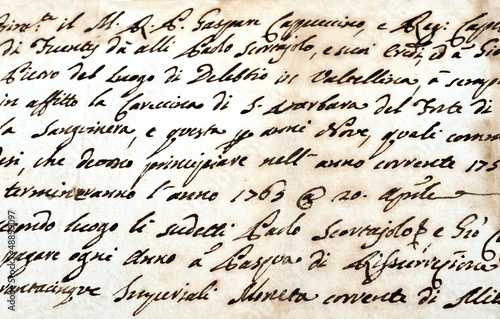 il M. R. P. Gaspare Capuccino, e Reg.
di Fuenty dà alli Paolo Scortajolo, e suoi Eredi, d à Gio
Piero del Luogo di Delebio in Valtellina, à
in affitto la Cascina di S. Barbara del Forte di
la Sanguinera, e questo p anni Nove, quali
che devono principiare nell' anno corrente 175
termineranno l' anno 1763 20. Aprile
luogo li sudetti Paolo Scortajolo, e Gio
pagare ogni Anno à Pasqua di Rissurrezione
rantacinque Imperiali Moneta corrente di Mila